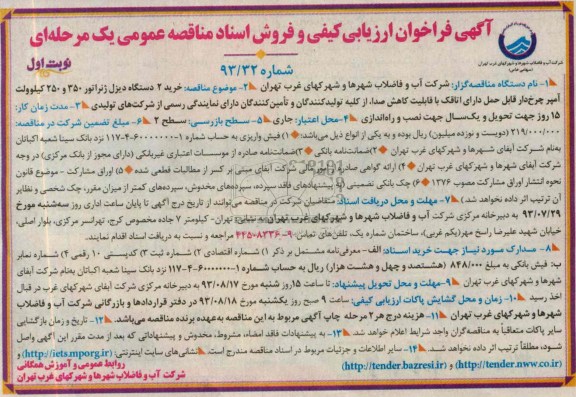 آگهی فراخوان ارزیابی کیفی و فروش اسناد مناقصه عمومی یک مرحله‌ای
شرکت آب و فاضلاب شهرها و شهرکهای غرب تهران
(سهامی خاص)
شماره ۹۳/۳۲
نوبت اول
۱- نام دستگاه مناقصه‌گزار: شرکت آب و فاضلاب شهرها و شهرکهای غرب تهران ۲- موضوع مناقصه: خرید ۲ دستگاه دیزل ژنراتور ۳۵۰ و ۲۵۰ کیلوولت
آمپر چرخ‌دار قابل حمل دارای اتاقک با قابلیت کاهش صدا، از کلیه تولیدکنندگان و تأمین‌کنندگان دارای نمایندگی رسمی از شرکت‌های تولیدی ۳- مدت زمان کار:
۱۵ روز جهت تحویل و یک‌سال جهت نصب و راه‌اندازی ۴- محل اعتبار: جاری ۵- سطح بازرسی: سطح ۲ ۶- مبلغ تضمین شرکت در مناقصه:
۲۱۹/۰۰۰/۰۰۰ (دویست و نوزده میلیون) ریال بوده و به یکی از انواع ذیل می‌باشد: ۱) فیش واریزی به حساب شماره ۱-۶۰۰۰۰۰۰-۴-۱۱۷ نزد بانک سینا شعبه اکباتان
به‌نام شرکت آبفای شهرها و شهرکهای غرب تهران ۲) ضمانت‌نامه بانکی ۳) ضمانت‌نامه صادره از موسسات اعتباری غیربانکی (دارای مجوز از بانک مرکزی) در وجه
شرکت آبفای شهرها و شهرکهای غرب تهران ۴) ارائه گواهی صادره مالی شرکت آبفای مبنی بر کسر از مطالبات قطعی شده ۵) اوراق مشارکت - موضوع قانون
نحوه انتشار اوراق مشارکت مصوب ۱۳۷۶ ۶) چک بانکی تضمینی (به پیشنهادهای فاقد سپرده، سپرده‌های مخدوش، سپرده‌های کمتر از میزان مقرر، چک شخصی و نظایر
آن ترتیب اثر داده نخواهد شد.) ۷- مهلت و محل دریافت اسناد: متقاضیان شرکت در مناقصه می‌توانند از تاریخ درج آگهی تا پایان ساعت اداری روز سه‌شنبه مورخ
۹۳/۰۷/۲۹ به دبیرخانه مرکزی شرکت آب و فاضلاب شهرها و شهرکهای غرب تهران به نشانی: تهران- کیلومتر ۷ جاده مخصوص کرج، تهرانسر مرکزی، بلوار اصلی،
خیابان شهید علیرضا راسخ مهر (یکم غربی)، ساختمان شماره یک، تلفن‌های تماس: ۹-۴۴۵۰۸۳۳۶ مراجعه و نسبت به دریافت اسناد اقدام نمایند.
۸- مدارک مورد نیاز جهت خرید اسناد: الف- معرفی‌نامه مشتمل بر ذکر ۱) شماره اقتصادی ۲) شماره ثبت ۳) کدپستی ۱۰ رقمی ۴) شماره نمابر
ب: فیش بانکی به مبلغ ۸۴۸/۰۰۰ (هشتصد و چهل و هشت هزار) ریال به حساب شماره ۱-۶۰۰۰۰۰۰-۴-۱۱۷ نزد بانک سینا شعبه اکباتان به‌نام شرکت آبفای
شهرها و شهرکهای غرب تهران ۹- مهلت و محل تحویل پیشنهاد: تا ساعت ۱۵ روز شنبه مورخ ۹۳/۰۸/۱۷ به دبیرخانه مرکزی شرکت آبفای شهرکهای غرب در قبال
اخذ رسید ۱۰- زمان و محل گشایش پاکات ارزیابی کیفی: ساعت ۹ صبح روز یکشنبه مورخ ۹۳/۰۸/۱۸ در دفتر قراردادها و بازرگانی شرکت آب و فاضلاب
شهرها و شهرکهای غرب تهران ۱۱- هزینه درج هر ۲ مرحله چاپ آگهی مربوط به این مناقصه به‌عهده برنده مناقصه می‌باشد. ۱۲- تاریخ و زمان بازگشایی
سایر پاکات متعاقباً به مناقصه‌گران واجد شرایط اعلام خواهد شد. ۱۳- به پیشنهادات فاقد امضاء، مشروط، مخدوش و پیشنهاداتی که بعد از مدت مقرر این آگهی واصل
شود، مطلقاً ترتیب اثر داده نخواهد شد. ۱۴- سایر اطلاعات و جزئیات مربوط در اسناد مناقصه مندرج است. نشانی‌های سایت اینترنتی: (http://iets.mporg.ir) و
(http://tender.nww.co.ir) و (http://tender.bazresi.ir)
روابط عمومی و آموزش همگانی
شرکت آب و فاضلاب شهرها و شهرکهای غرب تهران